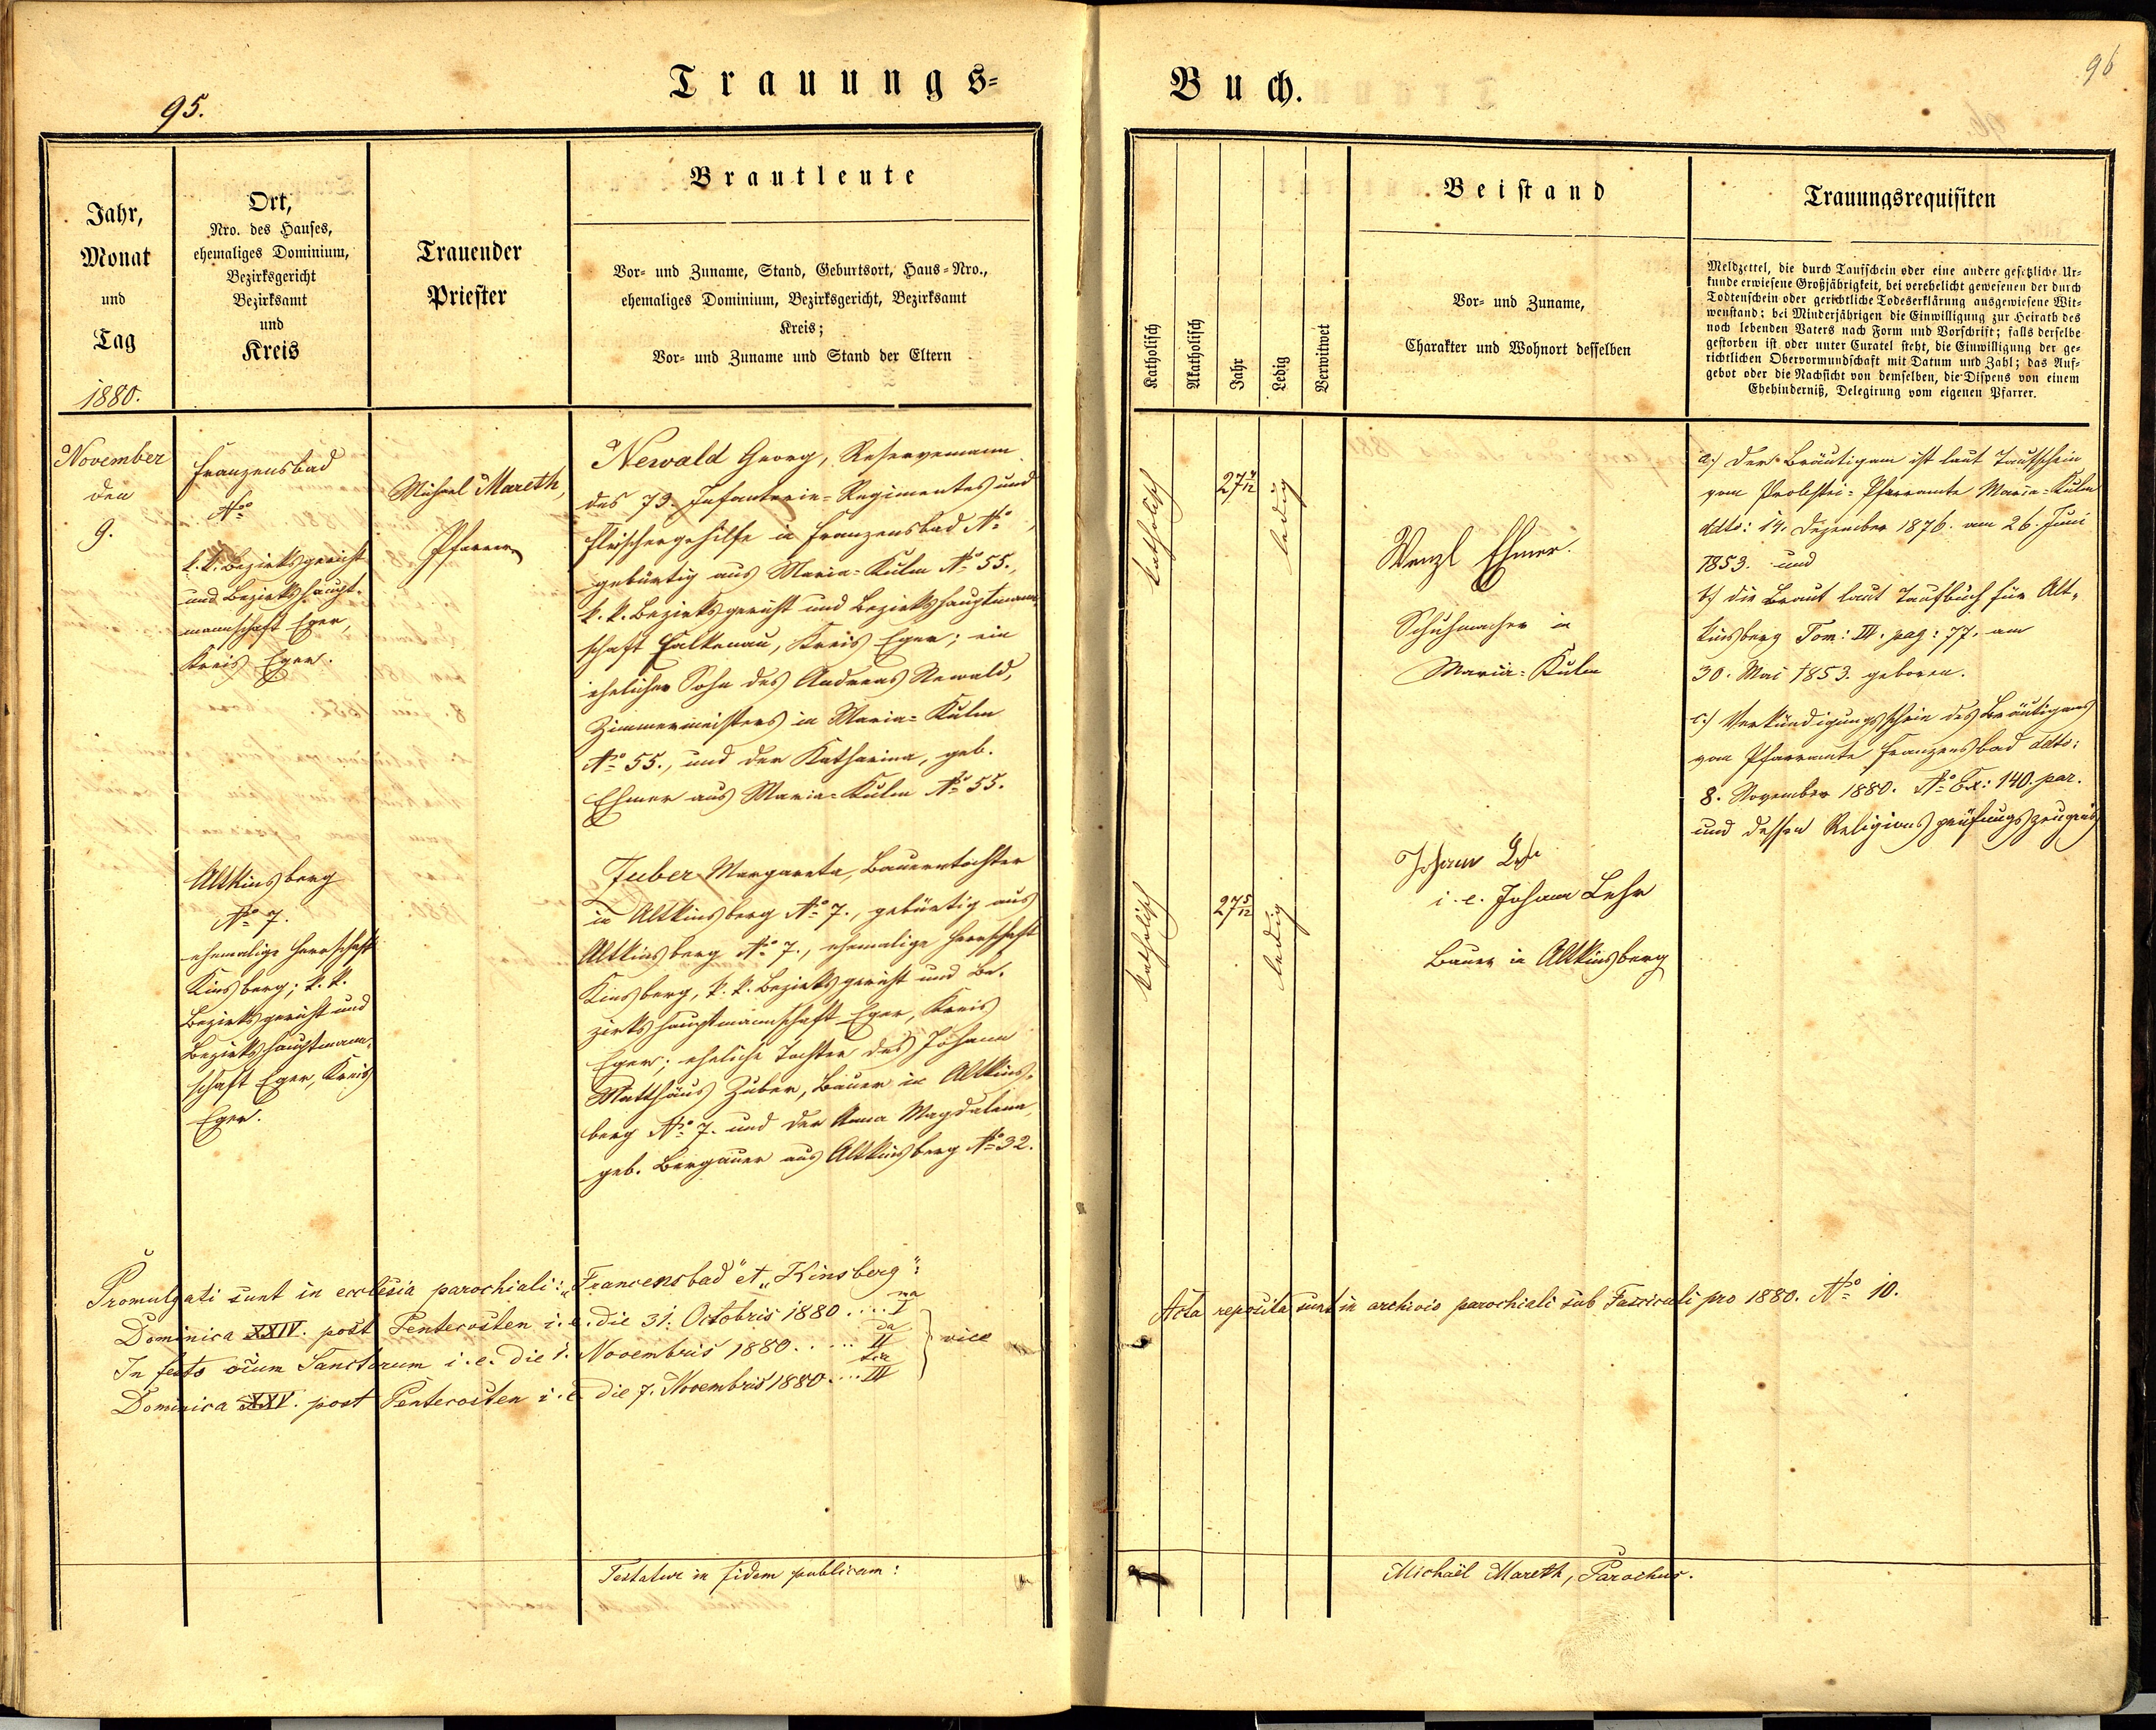 95.
Trauungs=
Jahr,
Monat
und
Tag
1880.
Ort,
Nro. des Hauses,
ehemaliges Dominium,
Bezirksgericht
Bezirksamt
und
Kreis
Trauender
Priester
Brautleute
Vor- und Zuname, Stand, Geburtsort, Haus-Nro.,
ehemaliges Dominium, Bezirksgericht, Bezirksamt
Kreis;
Vor- und Zuname und Stand der Eltern
November
den
9.
Franzensbad
No
k. k. Bezirksgericht
und Bezirkshaupt-
mannschaft Eger,
Kreis Eger.
Michael Mareth,
Pfarrer
Newald Georg, Reservemann
des 73. Infanterie-Regimentes und
Fleischergehilfe in Franzensbad No ,
gebürtig aus Maria-Kulm No 55.,
k. k. Bezirksgericht und Bezirkshauptmann-
schaft Falkenau, Kreis Eger; ein
ehelicher Sohn des Andreas Newald,
Zimmermeisters in Maria-Kulm
No 55., und der Katharina, geb.
Ehmer aus Maria-Kulm No 55.
Altkinsberg
No 7.
ehemalige Herrschaft
Kinsberg; k. k.
Bezirksgericht und
Bezirkshauptmann-
schaft Eger, Kreis
Eger.
Zuber Margareta, Bauerntochter
in Altkinsberg No 7., gebürtig aus
Altkinsberg No 7., ehemalige Herrschaft
Kinsberg, k. k. Bezirksgericht und Be-
zirkshauptmannschaft Eger, Kreis
Eger; eheliche Tochter des Johann
Matthäus Zuber, Bauer in Altkins-
berg No 7. und der Anna Magdalena,
geb. Bergauer aus Altkinsberg No 32.
Promulgati sunt in ecclesia parochiali: „Francensbad" et „Kinsberg":
Dominica XXIV. post Pentecosten i. e. die 31. Octobris 1880 .... I ma
In festo oium Sanctorum i. e. die 1. Novembris 1880 ..... II da } vice
Dominica XXV. post Pentecosten i. e. die 7. Novembris 1880 .... III tia
Testatur in fidem publicam:
96
Buch.
Katholisch
Akatholisch
Jahr
Ledig
Verwitwet
Beistand
Vor- und Zuname,
Charakter und Wohnort desselben
Trauungsrequisiten
Meldzettel, die durch Taufschein oder eine andere gesetzliche Ur-
kunde erwiesene Großjährigkeit, bei verehelicht gewesenen der durch
Todtenschein oder gerichtliche Todeserklärung ausgewiesene Wit-
wenstand; bei Minderjährigen die Einwilligung zur Heirath des
noch lebenden Vaters nach Form und Vorschrift; falls derselbe
gestorben ist oder unter Curatel steht, die Einwilligung der ge-
richtlichen Obervormundschaft mit Datum und Zahl; das Auf-
gebot oder die Nachsicht von demselben, die Dispens von einem
Ehehinderniß, Delegirung vom eigenen Pfarrer.
katholisch
27 4/12
ledig
Wenzl Ehmer.
Schuhmacher in
Maria-Kulm
a.) Der Bräutigam ist laut Taufschein
vom Probstei-Pfarramte Maria-Kulm
ddto: 14. Dezember 1876. am 26. Juni
1853. und
b.) die Braut laut Taufbuch für Alt-
kinsberg Tom: III. pag: 77. am
30. Mai 1853. geboren.
c.) Verkündigungsschein des Bräutigams
vom Pfarramte Franzensbad ddto:
8. November 1880. No Ex: 140. par.
und dessen Religionsprüfungszeugnis
katholisch
27 5/12
ledig
Johann
i. e. Johann Lehr
Bauer in Altkinsberg
Acta reposita sunt in archivio parochiali sub Fasciculi pro 1880. No 10.
Michaël Mareth, Parochus.